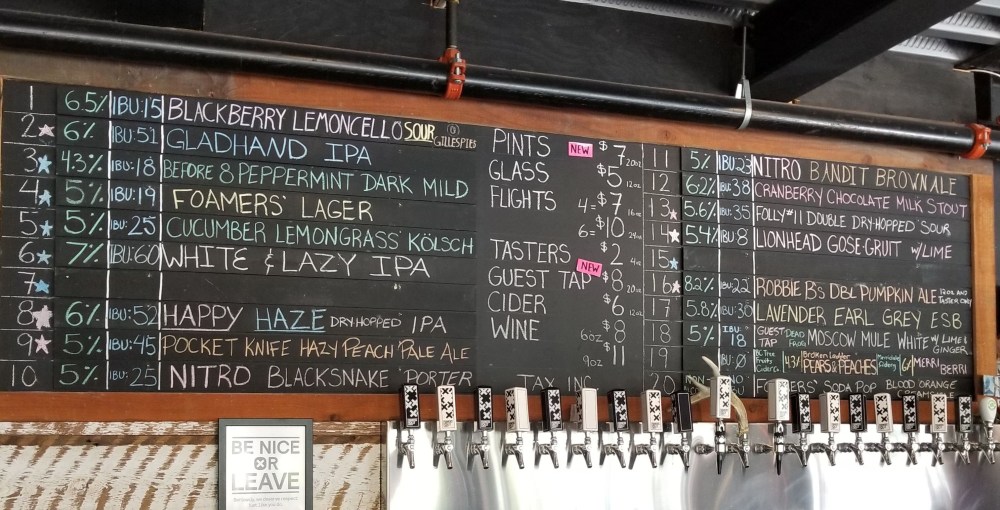 1 6.5% IBU:15 BLACKBERRY LEMONCELLO SOUR GILLESPIES
2 6% IBU:51 GLADHAND IPA
3 4.3% IBU:18 BEFORE 8 PEPPERMINT DARK MILD
4 5% IBU:19 FOAMERS' LAGER
5 5% IBU:25 CUCUMBER LEMONGRASS KÖLSCH
6 7% IBU:60 WHITE & LAZY IPA
7
8 6% IBU:52 HAPPY HAZE DRY HOPPED IPA
9 5% IBU:45 POCKET KNIFE HAZY PEACH PALE ALE
10 5% IBU:25 NITRO BLACKSNAKE PORTER
PINTS NEW $7 20oz
GLASS $5 12oz
FLIGHTS 4= $7 16oz
6= $10 24oz
TASTERS $2 4oz
NEW
GUEST TAP $8 20oz
CIDER $6 12oz
WINE 6oz $8
9oz $11
TAX INC
11 5% IBU:23 NITRO BANDIT BROWN ALE
12 6.2% IBU:38 CRANBERRY CHOCOLATE MILK STOUT
13 5.6% IBU:35 FOLLY #11 DOUBLE DRY-HOPPED SOUR
14 5.4% IBU:8 LIONHEAD GOSE-GRUIT W/LIME
15
16 8.2% IBU:22 ROBBIE B's DBL PUMPKIN ALE 12OZ AND TASTER ONLY
17 5.8% IBU:30 LAVENDER EARL GREY ESB
18 5% IBU:18 GUEST TAP DEAD FROG MOSCOW MULE WHITE W/ LIME & GINGER
19 IBU:0 BC Tree Fruits Cider Co Broken Ladder PEARS & PEACHES Merridale Cidery MERRI BERRI
20 SODA POP BLOOD ORANGE
BE NICE
OR
LEAVE